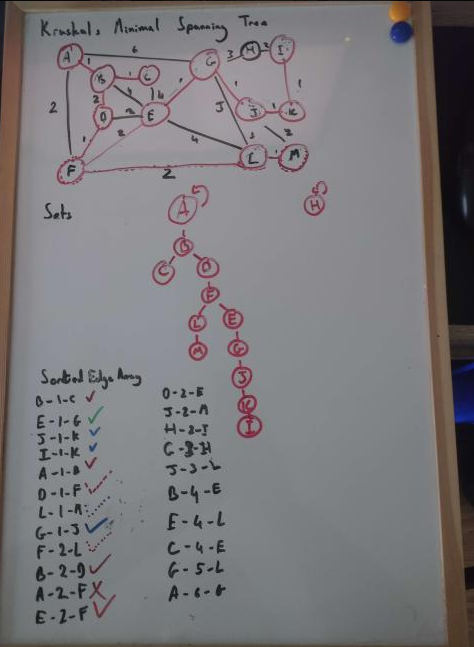 Kruskals Minimal Spanning Tree
6
A 1 B 1 C G 3 H 2 I
2 2 4 4 1 1 1
D 2 E 5 J 1 K
1 2 4 3 2
F 2 L 1 M
Sets
A
H
B
C D
E
L E
M G
J
K
I
Sorted Edge Array
B-1-C
E-1-G
J-1-K
I-1-K
A-1-B
D-1-F
L-1-M
G-1-J
F-2-L
B-2-D
A-2-F X
E-2-F
D-2-E
J-2-M
H-2-I
G-3-H
J-3-L
B-4-E
E-4-L
C-4-E
G-5-L
A-6-G